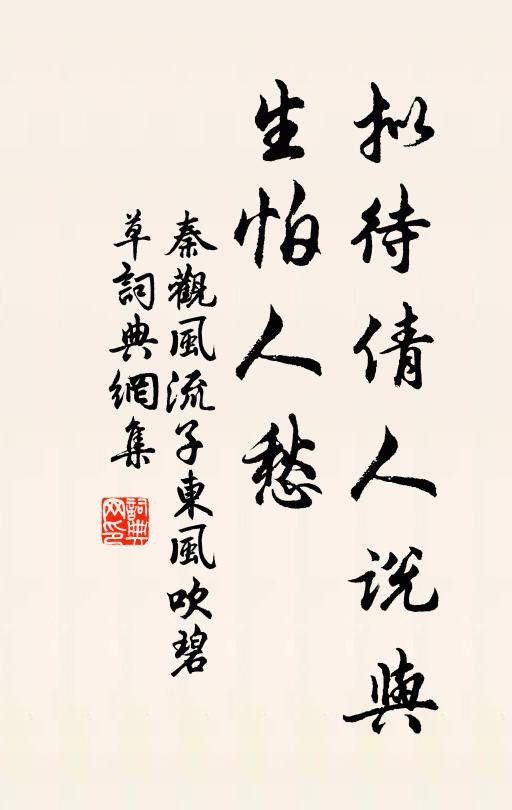 拟待倩人说與
生怕人愁
秦觀風流子東風吹碧
草詞典網集
詞典网印